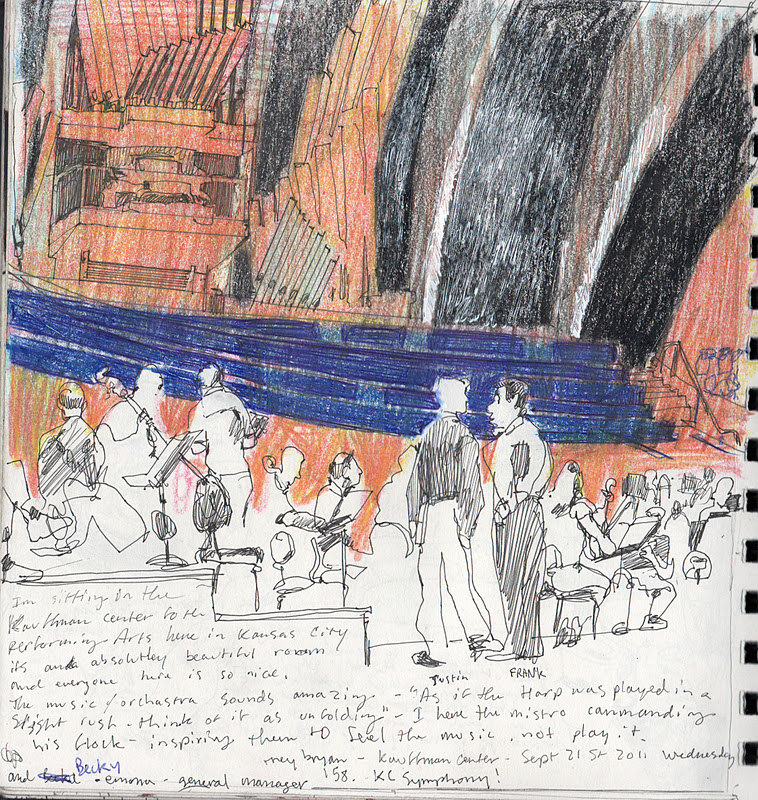 I'm sitting in the
Kauffman center for the
Performing Arts here in Kansas City
its an absolutley beautiful room
and everyone here is so nice.
Justin FRANK
The music/orchestra sounds amazing - "As if the Harp was played in a
slight rush - think of it as unfolding" - I here the mistro commanding
his flock - inspiring them to feel the music, not play it.
bryan - Kauffman center - Sept 21 St 2011 Wednesday
Becky
and - general manager '58. KC Symphony!